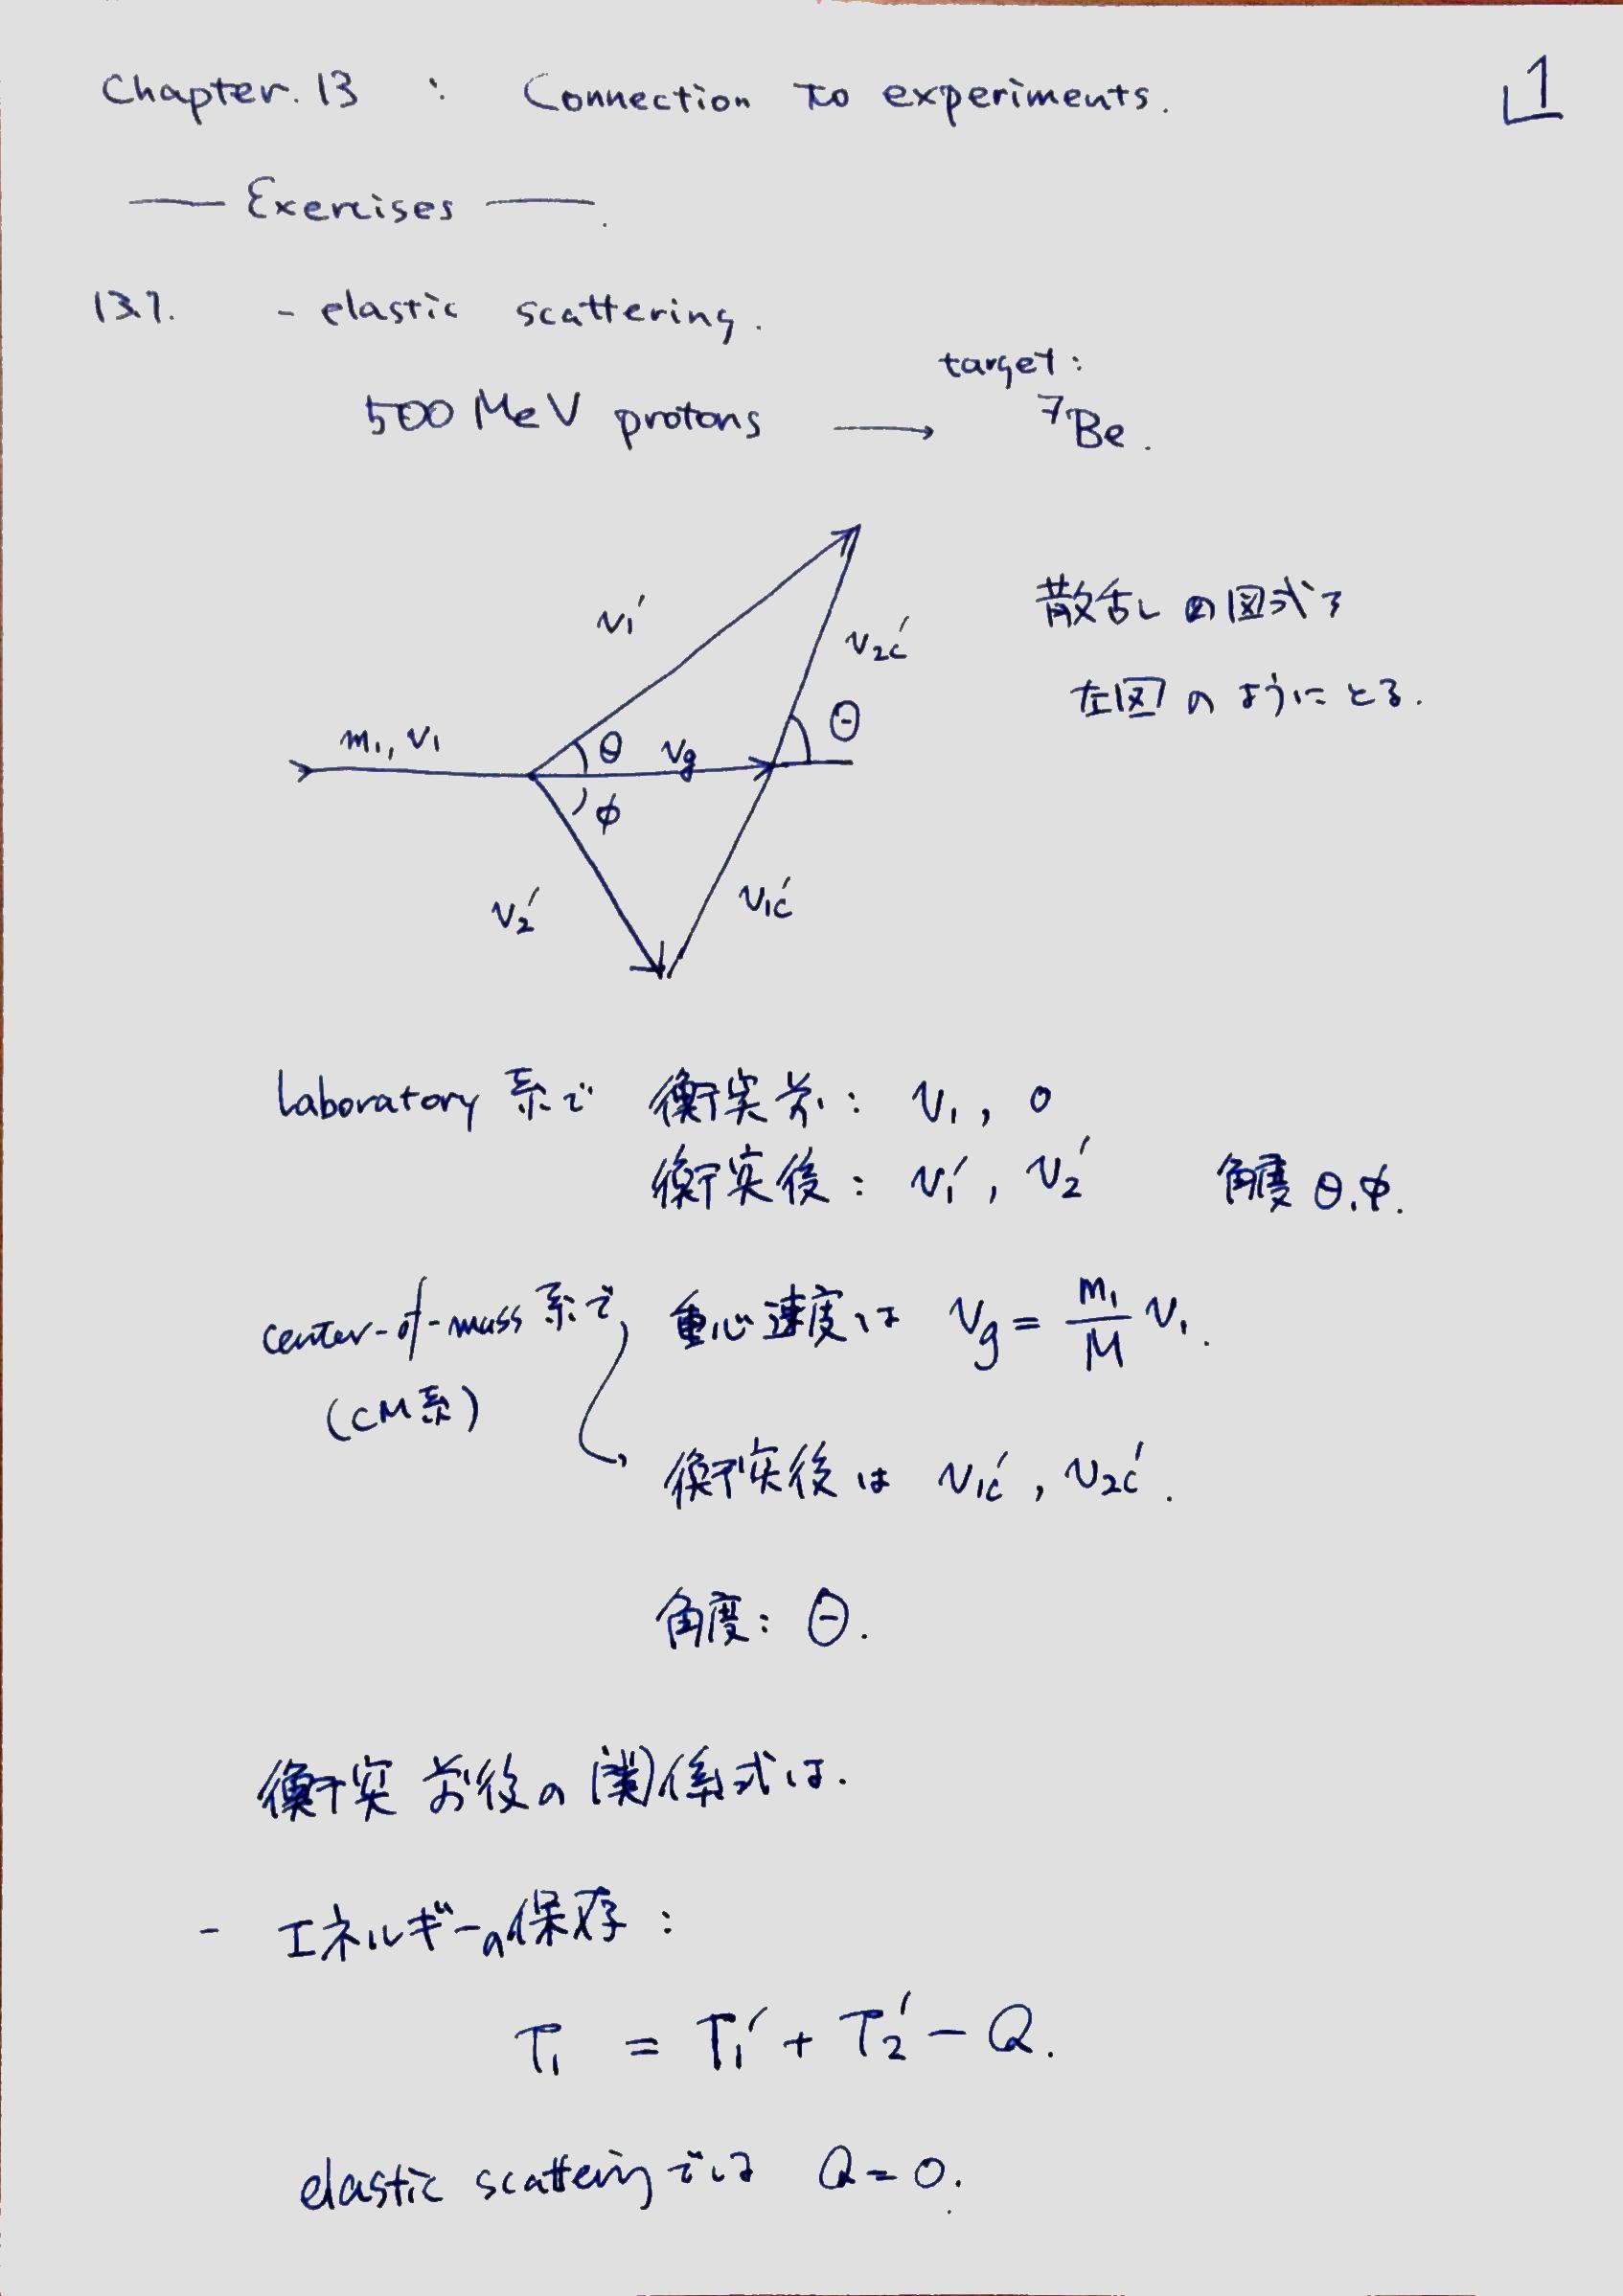 Chapter. 13 : Connection to experiments.
1
Exercises
13.1. - elastic scattering.
target:
500 MeV protons → ⁷Be.
v₁′
v₂c′
散乱の図式を
左図のようにとる.
m₁, v₁
θ
v_g
Θ
φ
v₂′
v₁c′
laboratory 系で 衝突前: v₁, 0
衝突後: v₁′, v₂′ 角度 θ, φ.
center-of-mass 系で 重心速度は v_g = m₁/M v₁.
(CM系)
衝突後は v₁c′, v₂c′.
角度: Θ.
衝突前後の関係式は.
- エネルギーの保存:
T₁ = T₁′ + T₂′ - Q.
elastic scattering では Q = 0.